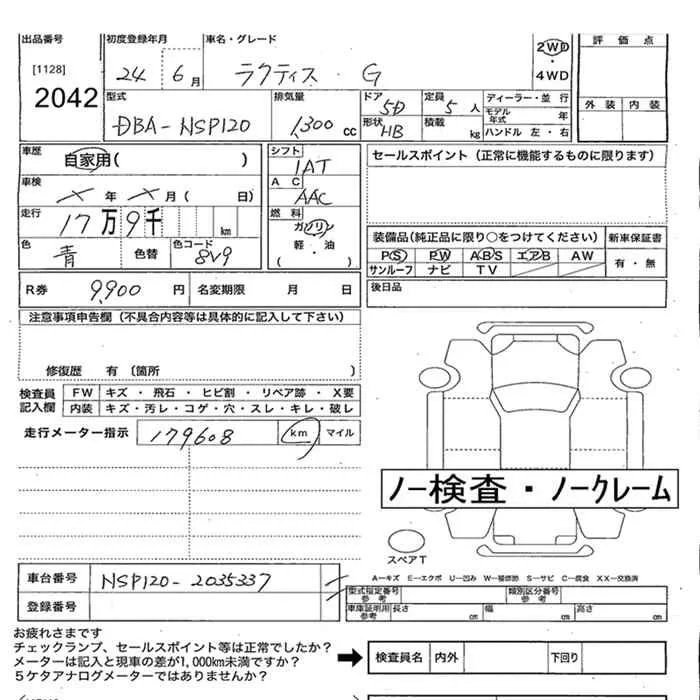 出品番号 初度登録年月 車名・グレード 評価点
[1128] 24 6月 ラクティス・G 2WD・4WD
2042 外装 内装
型式 排気量 ドア 5D 定員 5人 ディーラー・並行
DBA-NSP120 1,300cc 形状 HB 積載 kg モデル年式 年
ハンドル 左・右
車歴 自家用( ) シフト 1AT セールスポイント(正常に機能するものに限ります)
車検 × 年 × 月( 日) AC AAC
走行 17万9千 km 燃料 ガソリン 軽・油 ( )
装備品(純正品に限り○をつけてください) 新車保証書
色 青 色替 色コード 8V9 PS PW ABS エアB AW 有・無
サンルーフ ナビ TV
R券 9,900円 名変期限 月 日 後日品
注意事項申告欄(不具合内容等は具体的に記入して下さい)
修復歴 有〔箇所 〕
検査員記入欄 FW キズ・飛石・ヒビ割・リペア跡・X要
内装 キズ・汚レ・コゲ・穴・スレ・キレ・破レ
走行メーター指示 179608 km マイル
ノー検査・ノークレーム
スペアT
車台番号 NSP120-2035337
A-キズ E-エクボ U-凹み W-補修跡 S-サビ C-腐食 XX-交換済
型式指定番号 参考 類別区分番号 参考
登録番号 車庫証明用 参考 長さ cm 幅 cm 高さ cm
お疲れさまです
チェックランプ、セールスポイント等は正常でしたか?
メーターは記入と現車の差が1,000km未満ですか? 検査員名 内外 下回り
5ケタアナログメーターではありませんか?